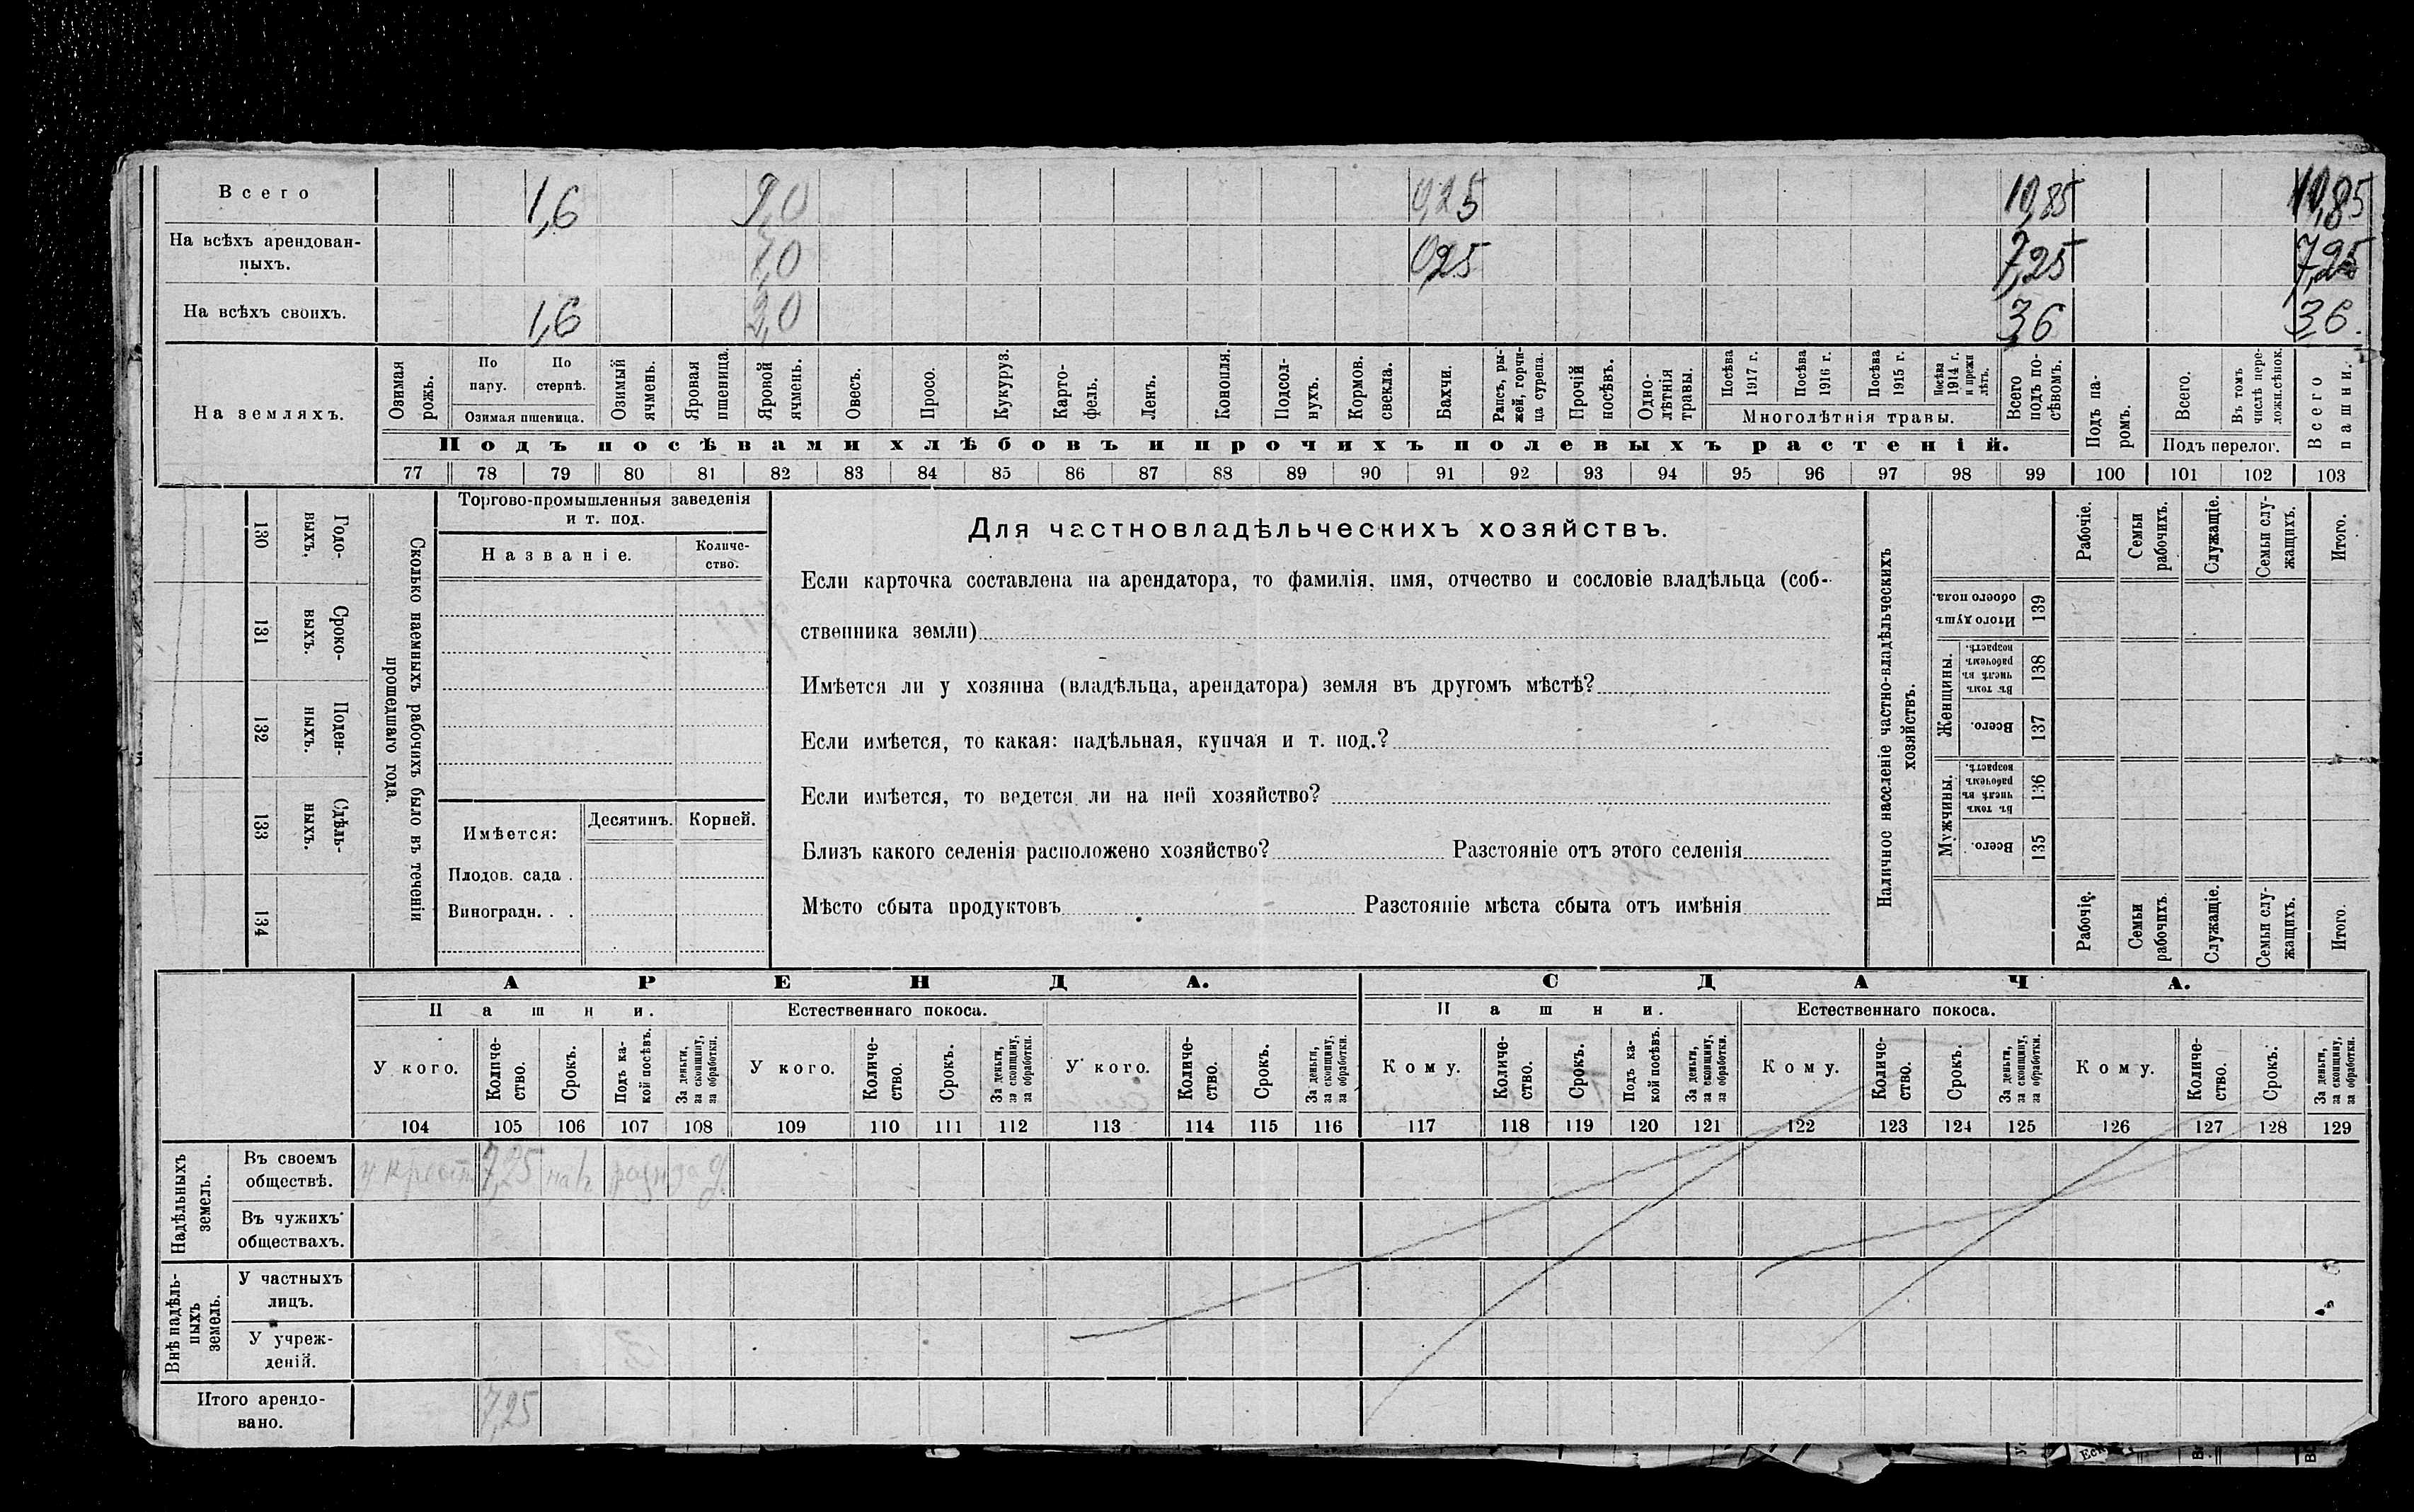 Всего 1,6 9,0 0,25 10,85 10,85
На всѣхъ арендован-
ныхъ. 7,0 0,25 7,25 7,25
На всѣхъ своихъ. 1,6 2,0 3,6 3,6
На земляхъ.
Озимая рожь.
По пару.
По стернѣ.
Озимая пшеница.
Озимый ячмень.
Яровая пшеница.
Яровой ячмень.
Овесъ.
Просо.
Кукуруз.
Карто-
фель.
Ленъ.
Конопля.
Подсол-
нухъ.
Кормов. свекла.
Бахчи.
Рапсъ, ры-
жей, горчи-
ца сурепа.
Прочій посѣвъ.
Одно-
лѣтнія травы.
Посѣва 1917 г.
Посѣва 1916 г.
Посѣва 1915 г.
Посѣва 1914 г. и прежн лѣтъ.
Многолѣтнія травы.
Всего подъ по-
сѣвомъ.
Подъ па-
ромъ.
Всего.
Въ томъ числѣ пере-
ложн. сѣнок.
Подъ перелог.
Всего пашни.
Подъ посѣвами хлѣбовъ и прочихъ полевыхъ растеній.
77 78 79 80 81 82 83 84 85 86 87 88 89 90 91 92 93 94 95 96 97 98 99 100 101 102 103
130 Годо-
выхъ.
131 Сроко-
выхъ.
132 Поден-
ныхъ.
133 Сдѣль-
ныхъ.
134
Сколько наемныхъ рабочихъ было въ теченіи
прошедшаго года.
Торгово-промышленныя заведенія
и т. под.
Названіе.
Количе-
ство.
Имѣется:
Десятинъ. Корней.
Плодов. сада .
Виноградн. . .
Для частновладѣльческихъ хозяйствъ.
Если карточка составлена на арендатора, то фамилія, имя, отчество и сословіе владѣльца (соб-
ственника земли)
Имѣется ли у хозяина (владѣльца, арендатора) земля въ другомъ мѣстѣ?
Если имѣется, то какая: надѣльная, купчая и т. под.?
Если имѣется, то ведется ли на ней хозяйство?
Близъ какого селенія расположено хозяйство? Разстояніе отъ этого селенія
Мѣсто сбыта продуктовъ Разстояніе мѣста сбыта отъ имѣнія
Наличное населеніе частно-владѣльческихъ
хозяйствъ.
Рабочіе.
Семьи рабочихъ.
Служащіе.
Семьи слу-
жащихъ.
Итого.
Итого душъ обоего пола. 139
Женщины.
Въ томъ числѣ въ рабочемъ возрастѣ. 138
Всего. 137
Мужчины.
Въ томъ числѣ въ рабочемъ возрастѣ. 136
Всего. 135
Рабочіе.
Семьи рабочихъ.
Служащіе.
Семьи слу-
жащихъ.
Итого.
АРЕНДА. СДАЧА.
Пашни. Естественнаго покоса. Пашни. Естественнаго покоса.
У кого.
Количе-
ство.
Срокъ.
Подъ ка-
кой посѣвъ.
За деньги, за скопщину, за обработки.
У кого.
Количе-
ство.
Срокъ.
За деньги, за скопщину, за обработки.
У кого.
Количе-
ство.
Срокъ.
За деньги, за скопщину, за обработки.
Кому.
Количе-
ство.
Срокъ.
Подъ ка-
кой посѣвъ.
За деньги, за скопщину, за обработки.
Кому.
Количе-
ство.
Срокъ.
За деньги, за скопщину, за обработки.
Кому.
Количе-
ство.
Срокъ.
За деньги, за скопщину, за обработки.
104 105 106 107 108 109 110 111 112 113 114 115 116 117 118 119 120 121 122 123 124 125 126 127 128 129
Надѣльныхъ земель.
Въ своемъ
обществѣ. у крест 7,25 на 1 разн за д.
Въ чужихъ
обществахъ.
Внѣ надѣль-
ныхъ земель.
У частныхъ
лицъ.
У учреж-
деній.
Итого арендо-
вано. 7,25